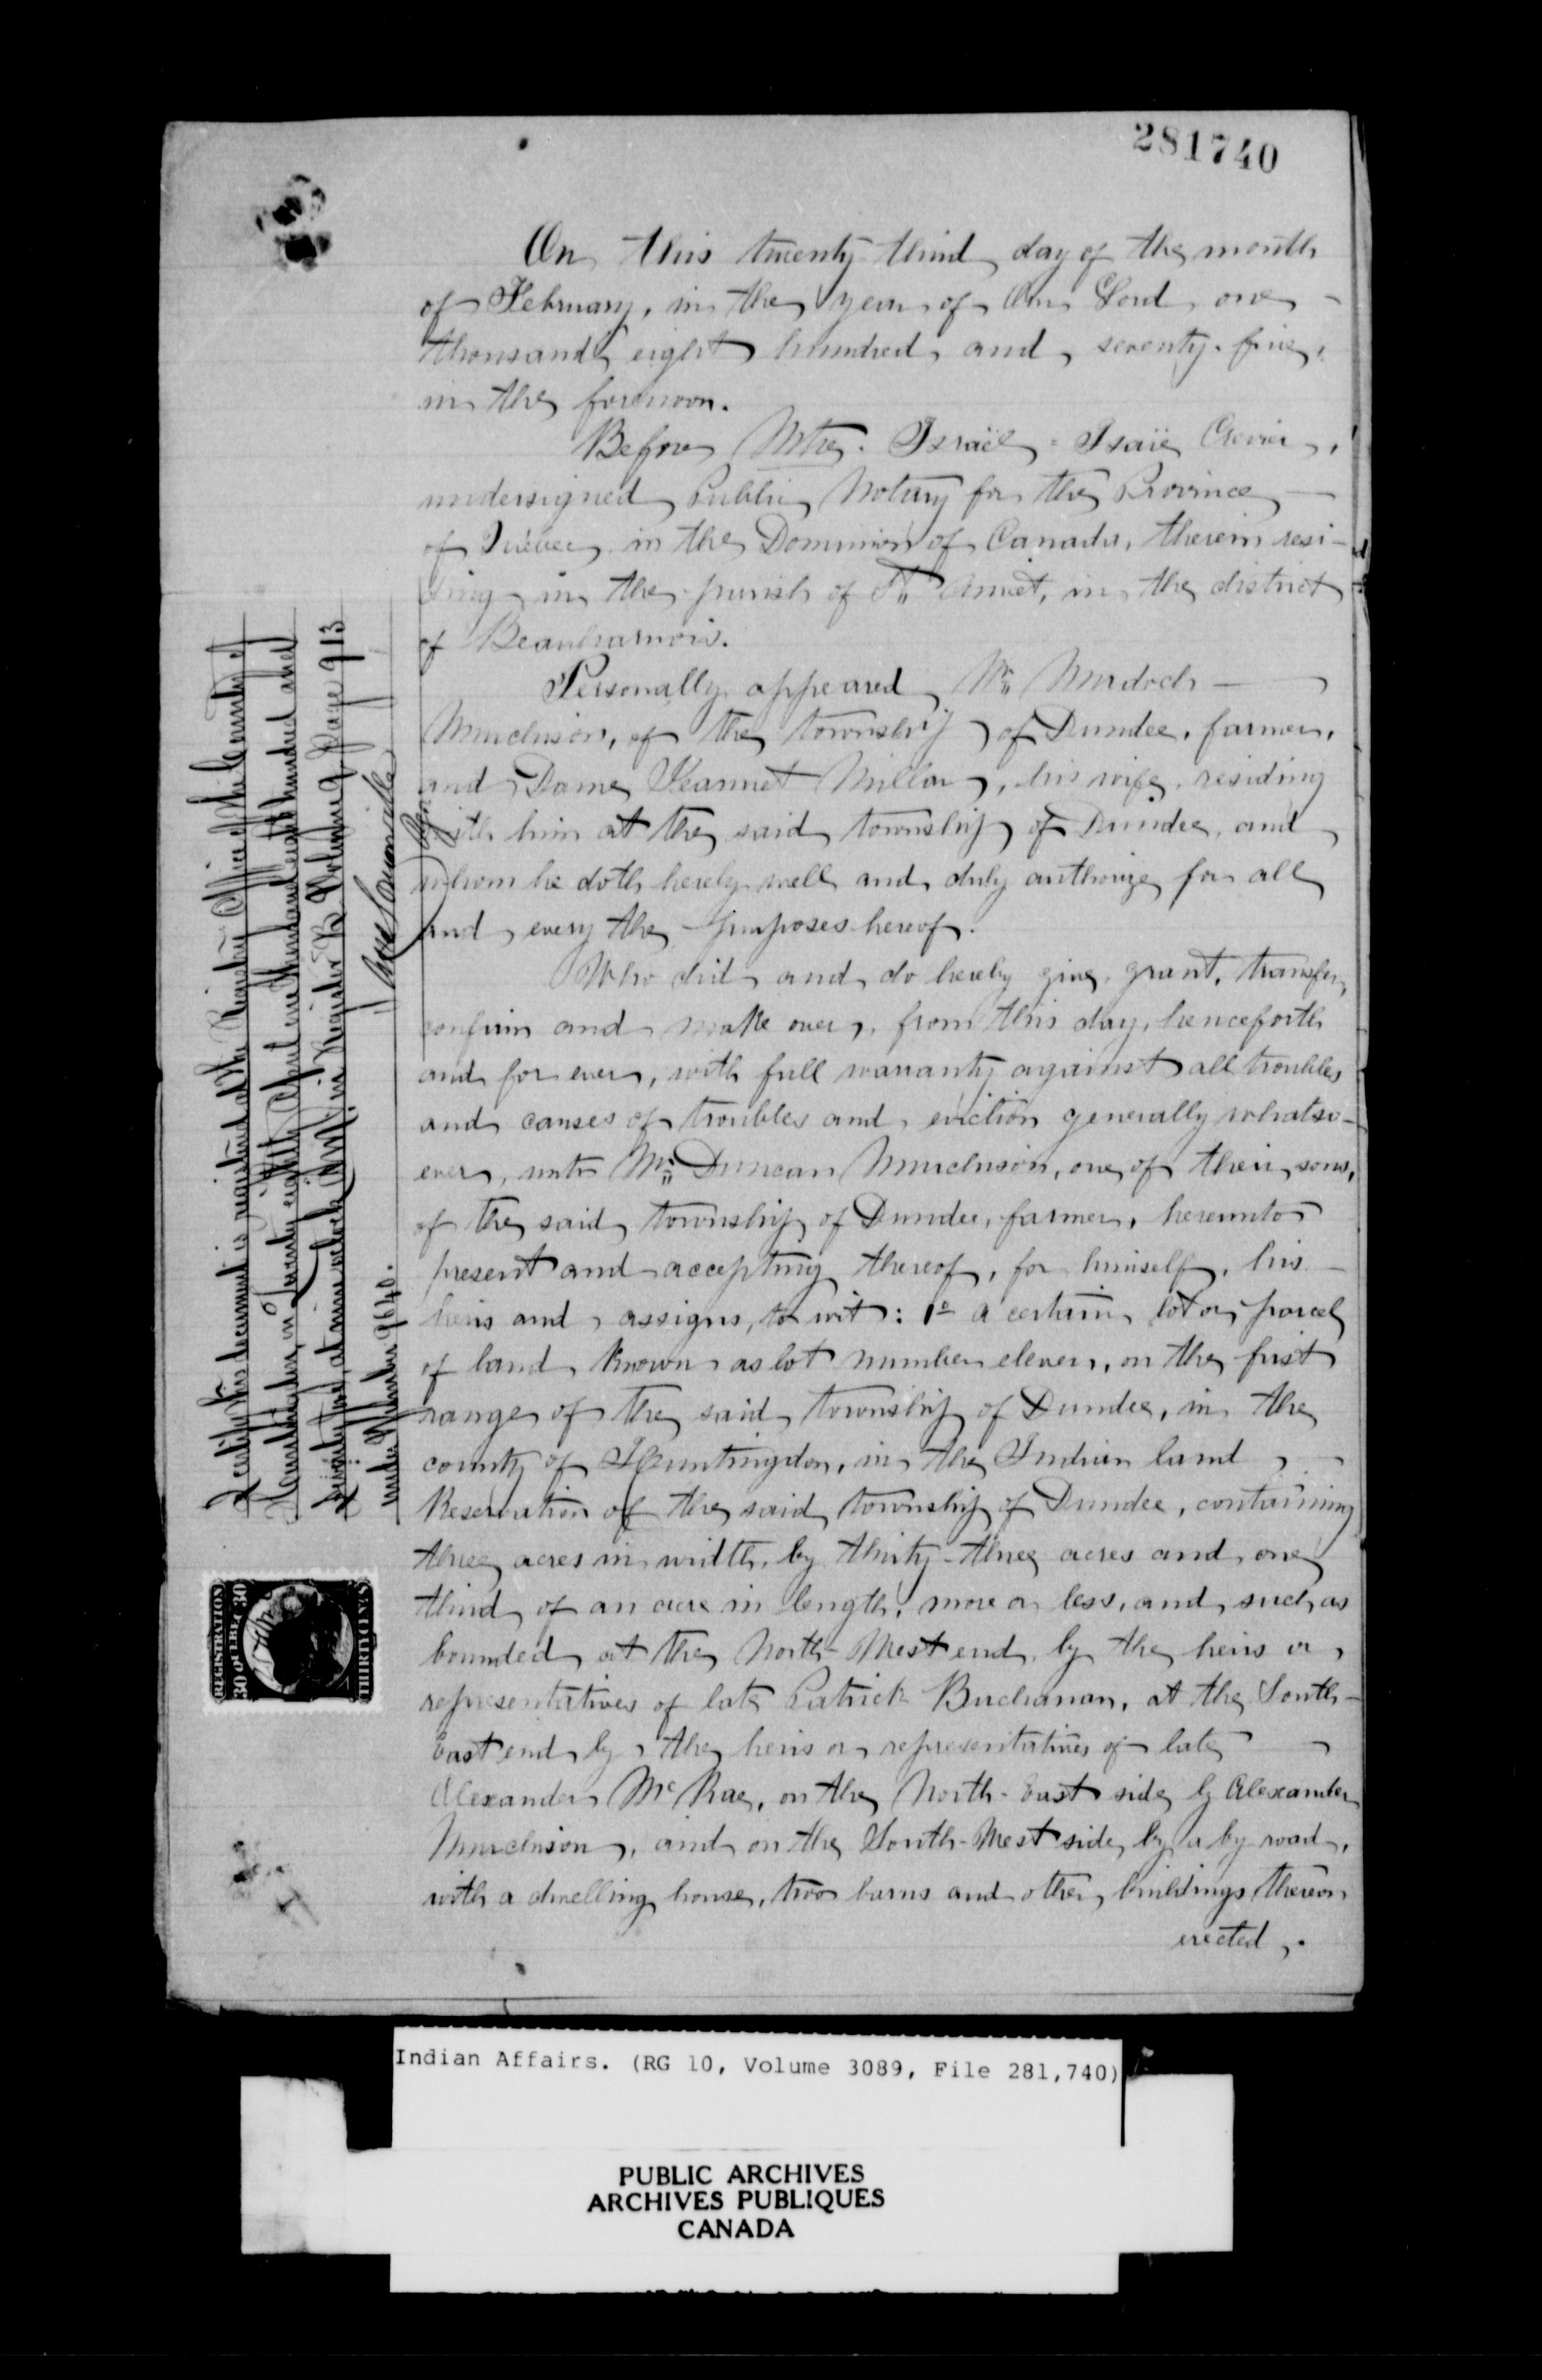 281740
On this twenty-third day of the month
of February, in the year of Our Lord one
thousand eight hundred and seventy-five,
in the forenoon.
Before Mtre. Israël-Isaïe Crevier,
undersigned Public Notary for the Province
of Quebec in the Dominion of Canada, therein resi-
ding in the parish of St. Anicet, in the district
of Beauharnois.
Personally appeared Mr. Murdoch
Murchison, of the township of Dundee, farmer,
and Dame Jeannet Millar, his wife, residing
with him at the said township of Dundee, and
whom he doth hereby well and duly authorize for all
and every the purposes hereof.
Who did and do hereby give, grant, transfer,
confirm and make over, from this day, henceforth
and for ever, with full warranty against all troubles
and causes of troubles and eviction generally whatso-
ever, unto Mr. Duncan Murchison, one of their sons,
of the said township of Dundee, farmer, hereunto
present and accepting thereof, for himself, his
heirs and assigns, to wit: 1o a certain lot or parcel
of land known as lot number eleven, on the first
range of the said township of Dundee, in the
county of Huntingdon, in the Indian land
Reservation of the said township of Dundee, containing
three acres in width, by thirty-three acres and one
third of an acre in length, more or less, and such as
bounded at the North-West end by the heirs or
representatives of late Patrick Buchanan, at the South-
East end by the heirs or representatives of late
Alexander McRae, on the North-East side by Alexander
Murchison, and on the South-West side by a by road,
with a dwelling house, two barns and other buildings thereon
erected.
I certify this document is registered at the Registry Office of the County of
Huntingdon, on Twenty eighth April one thousand eight hundred and
seventy five, at nine o'clock in Register B Volume 9 Page 913
under Number 9640.
REGISTRATION
30 QUEBEC 30
THIRTY CENTS
Indian Affairs. (RG 10, Volume 3089, File 281,740)
PUBLIC ARCHIVES
ARCHIVES PUBLIQUES
CANADA